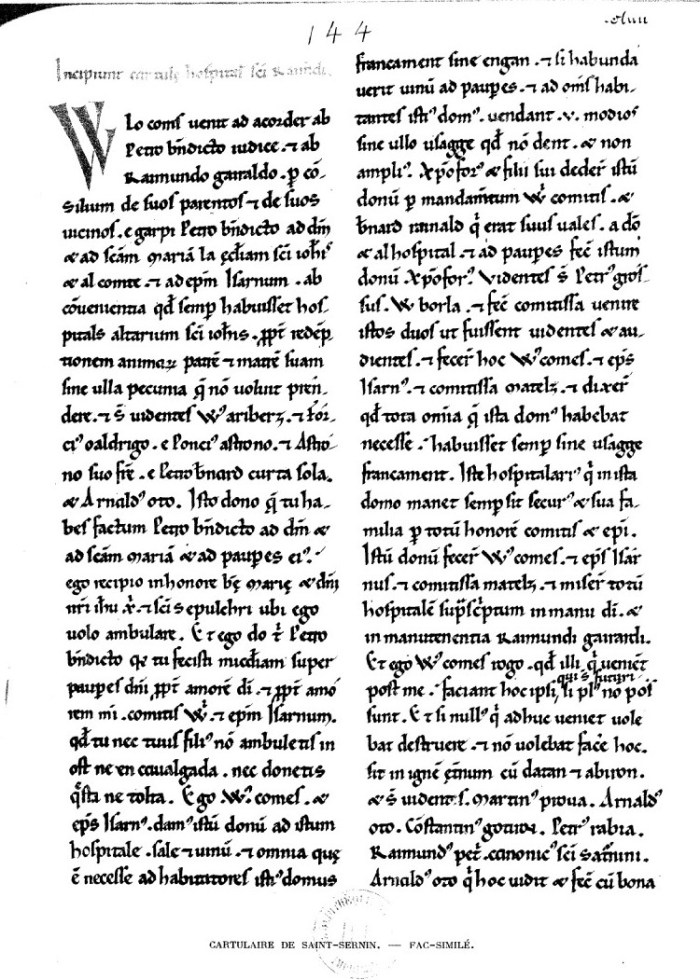 144
Incipiunt cartule hospital sci Raimdi.
WLo coms uenit ad acorder ab
Petro bndicto iudice .⁊ ab
Raimundo gairaldo . p cō-
silium de suos parentos ⁊ de suos
uicinos . e garpi Petro bndicto ad dm̄
& ad scam mariā la eccliam sci iohis
& al comte .⁊ ad epm Isarnum . ab
cōuenientia qd semp habuisset hos-
pitals altarium sci iohis . ppt redēp
tionem animarum patre ⁊ matre suam
sine ulla pecunia q nō uoluit pren-
dere . ⁊ s uidentes W ariberz . ⁊ for-
ci oaldrigo . e Ponci astrono . ⁊ Astro-
no suo fre . e Petro bnard curta sola .
& Arnald oto . Isto dono q tu ha-
bes factum Petro bndicto ad dm̄ &
ad scam mariā & ad paupes ei .
ego recipio in honore be marie & dm̄
nri ihu xr . ⁊ sci sepulchri ubi ego
uolo ambulare . Et ego do t Petro
bndicto qr tu fecisti mcdiam super
paupes dni ppt amore di . ⁊ ppt amo
rem mi . comitis W . ⁊ epm Isarnum .
qd tu nec tuus fili nō ambuletis in
ost ne en caualgada . nec donetis
qsta ne tolta . Ego W comes . &
eps Isarn . dam istū donū ad istum
hospitale . sale ⁊ uinū . ⁊ omnia que
ē necesse ad habitatores isti domus
francament sine engan . ⁊ si habunda
uerit uinū ad paupes . ⁊ ad oms habi-
tantes isti dom . uendant . v . modios
sine ullo usagge qd nō dent . & non
ampli . Xpofor & filii sui deder istū
donū p mandamtum W comitis . &
bnard rainald q erat suus uales . a do
& al hospital . ⁊ ad paupes fec istum
donū Xpofor . Videntes s Petr gros-
sus . W borla . ⁊ fec comitissa uenire
istos duos ut fuissent uidentes & au-
dientes . ⁊ fecer hoc W comes . ⁊ eps
Isarn . ⁊ comitissa matelz . ⁊ dixer
qd tota omia q ista dom habebat
necesse . habuisset semp sine usagge
francament . Iste hospitalari q in ista
domo manet semp sit secur & sua fa-
milia p totū honore comitis & epi .
Istū donū fecer W comes . ⁊ eps Isar
nus . ⁊ comitissa matelz . ⁊ miser totū
hospitalē supscptum in manu di . &
in manutenentia Raimundi gairardi .
Et ego W comes rogo . qd illi q uenient
post me . faciant hoc ipsi, qui s futuri si pl no pos
sunt . Et si null q adhuc ueniet uole
bat destruere . ⁊ nō uolebat face hoc .
sit in igne etnum cū datan ⁊ abiron .
& s uident s . Martin proua . Arnald
oto . Cōstantin . Petr rabia .
Raimund pet . canonic sci Satnini .
Arnald oto q hoc uidit & fec cū bona
CARTULAIRE DE SAINT-SERNIN. — FAC-SIMILÉ.